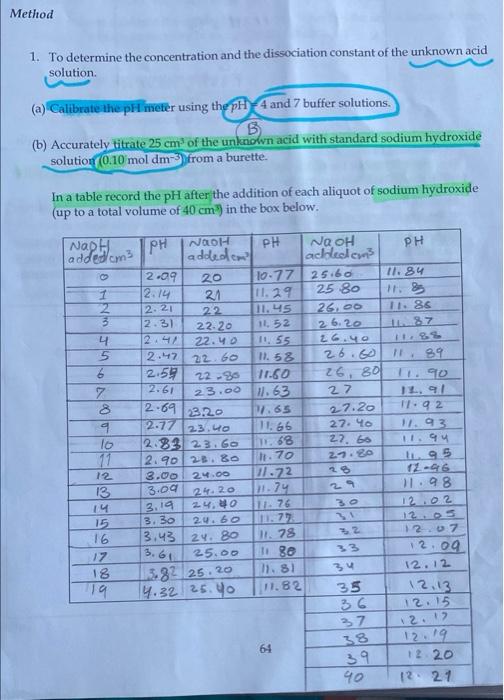 Method
1. To determine the concentration and the dissociation constant of the unknown acid
solution.
(a) Calibrate the pH meter using the pH = 4 and 7 buffer solutions.
B
(b) Accurately titrate 25 cm³ of the unknown acid with standard sodium hydroxide
solution (0.10 mol dm-3) from a burette.
In a table record the pH after the addition of each aliquot of sodium hydroxide
(up to a total volume of 40 cm³) in the box below.
NaOH PH NaOH PH NaOH PH
added cm³ added cm³ added cm³
0 2.09 20 10.77 25.60 11.84
1 2.14 21 11.29 25.80 11.85
2 2.21 22 11.45 26.00 11.86
3 2.31 22.20 11.52 26.20 11.87
4 2.41 22.40 11.55 26.40 11.88
5 2.47 22.60 11.58 26.60 11.89
6 2.54 22.80 11.60 26.80 11.90
7 2.61 23.00 11.63 27 11.91
8 2.69 23.20 11.65 27.20 11.92
9 2.77 23.40 11.66 27.40 11.93
10 2.83 23.60 11.68 27.60 11.94
11 2.90 23.80 11.70 27.80 11.95
12 3.00 24.00 11.72 28 11.96
13 3.09 24.20 11.74 29 11.98
14 3.19 24.40 11.76 30 12.02
15 3.30 24.60 11.77 31 12.05
16 3.43 24.80 11.78 32 12.07
17 3.61 25.00 11.80 33 12.09
18 3.82 25.20 11.81 34 12.12
19 4.32 25.40 11.82 35 12.13
36 12.15
37 12.17
64 38 12.19
39 12.20
40 12.21